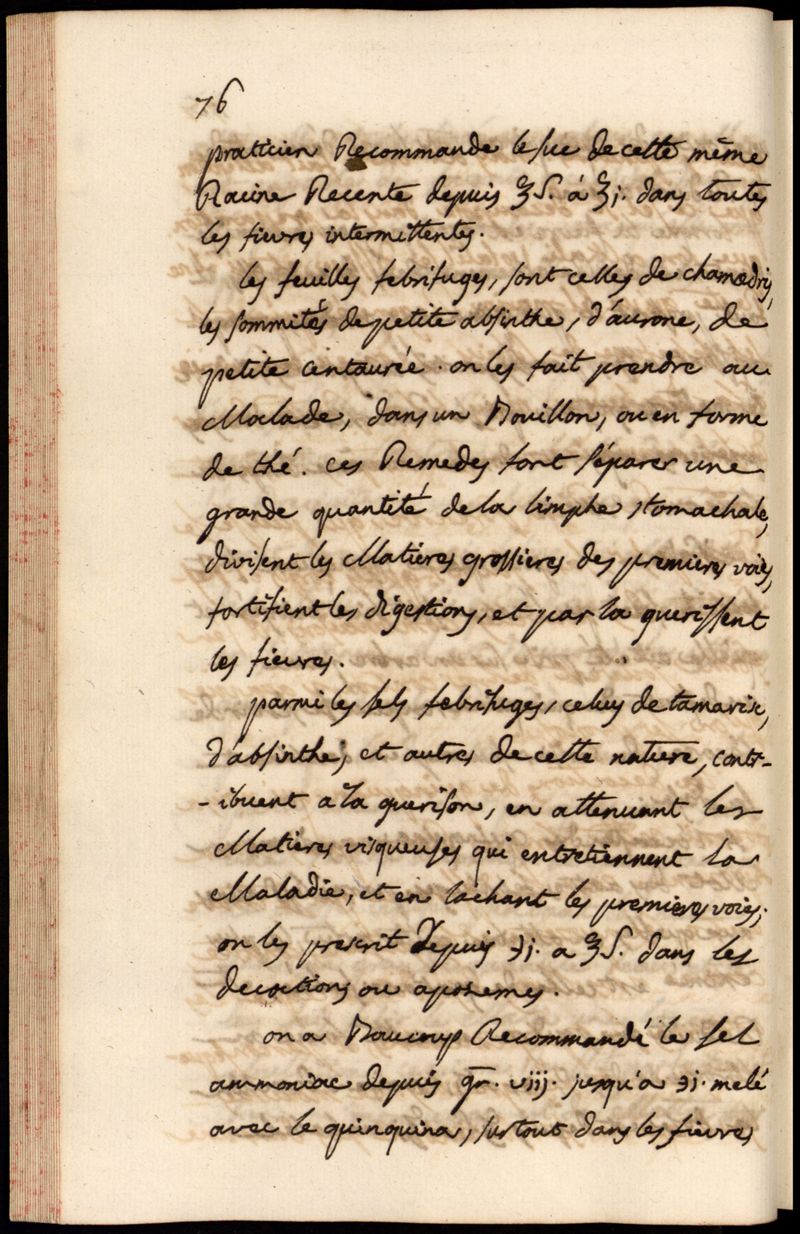 76
praticien Recommande le suc de cette même
Racine Recente depuis ʒS. á ʒj. dans toutes
les fievres intermittentes.
les feuilles febrifuges, sont celles de chamædris,
les sommités de petite absinthe, d'áurone, de
petite centaurée. on les fait prendre au
Malade, dans un Bouillon, ou en forme
de thé. ces Remedes font séparer une
grande quantité de la limphe stomachale,
divisent les Matieres grossieres des premieres voies,
fortifient les digestions, et par la querissent
les fievres.
parmi les sels febrifuges, celuy de tamarix,
d'absinthe, et autres de cette nature, contr-
-ibuent a la querison, en attenuant les
Matieres visqueuses qui entretiennent la
Maladie, et en lachant les premieres voies;
on les prescrit depuis ℈j. a ʒS. dans les
decoctions ou aposemes.
on a Baucoup Recommandé le sel
ammoniac depuis gr. viij. jusqu'a ℈j. melé
avec le quinquina, surtout dans les fievres